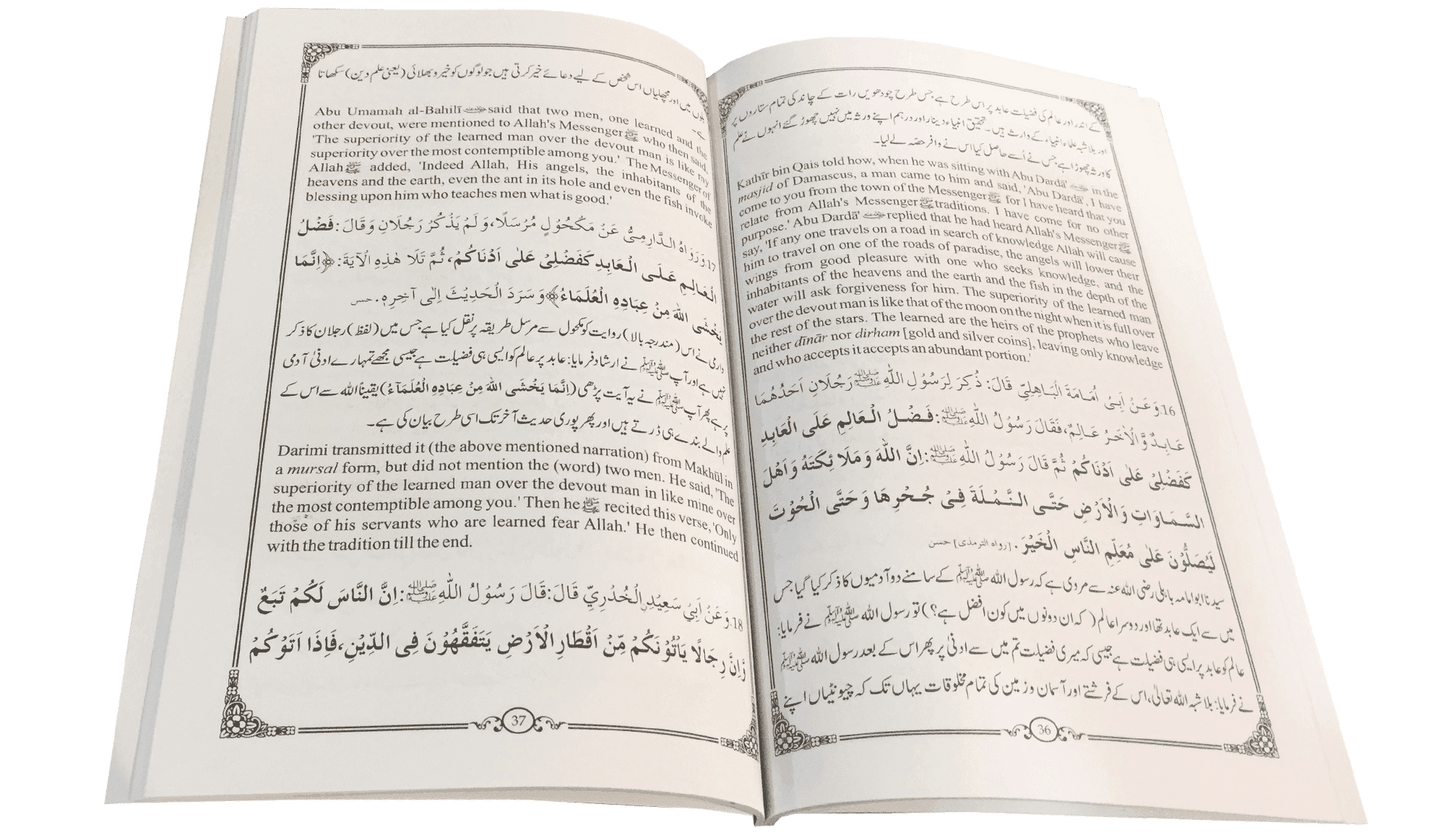 کے اندر اور عالم کی فضیلت عابد پر اس طرح ہے جس طرح چودھویں رات کے چاند کی تمام ستاروں پر
اور بلاشبہ علماء انبیاء کے وارث ہیں۔ تحقیق انبیاء دینار اور درہم اپنے ورثہ میں نہیں چھوڑ گئے انہوں نے علم
کا ورثہ چھوڑا ہے جس نے اُسے حاصل کیا اس نے وافر حصہ لے لیا۔
Kathīr bin Qais told how, when he was sitting with Abu Dardā' in the
masjid of Damascus, a man came to him and said, 'Abu Dardā', I have
come to you from the town of the Messenger ﷺ for I have heard that you
relate from Allah's Messenger ﷺ traditions. I have come for no other
purpose.' Abu Dardā' replied that he had heard Allah's Messenger ﷺ
say, 'If any one travels on a road in search of knowledge Allah will cause
him to travel on one of the roads of paradise, the angels will lower their
wings from good pleasure with one who seeks knowledge, and the
inhabitants of the heavens and the earth and the fish in the depth of the
water will ask forgiveness for him. The superiority of the learned man
over the devout man is like that of the moon on the night when it is full over
the rest of the stars. The learned are the heirs of the prophets who leave
neither dīnār nor dirham [gold and silver coins], leaving only knowledge
and who accepts it accepts an abundant portion.'
16. وَعَنْ اَبِيْ اُمَامَةَ الْبَاهِلِيِّ قَالَ: ذُكِرَ لِرَسُوْلِ اللّٰهِ ﷺ رَجُلَانِ اَحَدُهُمَا
عَابِدٌ وَّالْاٰخَرُ عَالِمٌ، فَقَالَ رَسُوْلُ اللّٰهِ ﷺ: فَضْلُ الْعَالِمِ عَلَى الْعَابِدِ
كَفَضْلِيْ عَلٰى اَدْنَاكُمْ ثُمَّ قَالَ رَسُوْلُ اللّٰهِ ﷺ: اِنَّ اللّٰهَ وَمَلَائِكَتَهُ وَاَهْلَ
السَّمَاوَاتِ وَالْاَرْضِ حَتَّى النَّمْلَةَ فِيْ جُحْرِهَا وَحَتَّى الْحُوْتَ
لَيُصَلُّوْنَ عَلٰى مُعَلِّمِ النَّاسِ الْخَيْرَ. [رواه الترمذى] حسن
سیدنا ابوامامہ باہلی رضی اللہ عنہ سے مروی ہے کہ رسول اللہ ﷺ کے سامنے دو آدمیوں کا ذکر کیا گیا جس
میں سے ایک عابد تھا اور دوسرا عالم (کہ ان دونوں میں کون افضل ہے؟) تو رسول اللہ ﷺ نے فرمایا:
عالم کو عابد پر ایسی ہی فضیلت ہے جیسی کہ میری فضیلت تم میں سے ادنیٰ پر پھر اس کے بعد رسول اللہ ﷺ
نے فرمایا: بلاشبہ اللہ تعالیٰ، اس کے فرشتے اور آسمان و زمین کی تمام مخلوقات یہاں تک کہ چیونٹیاں اپنے
36
بلوں میں اور مچھلیاں اس شخص کے لیے دعائے خیر کرتی ہیں جو لوگوں کو خیر و بھلائی (یعنی علم دین) سکھاتا
ہے۔
Abu Umamah al-Bahilī said that two men, one learned and the
other devout, were mentioned to Allah's Messenger ﷺ who then said,
'The superiority of the learned man over the devout man is like my
superiority over the most contemptible among you.' The Messenger of
Allah ﷺ added, 'Indeed Allah, His angels, the inhabitants of the
heavens and the earth, even the ant in its hole and even the fish invoke
blessing upon him who teaches men what is good.'
17. وَرَوَاهُ الدَّارِمِيُّ عَنْ مَكْحُوْلٍ مُرْسَلًا، وَلَمْ يَذْكُرْ رَجُلَانِ وَقَالَ: فَضْلُ
الْعَالِمِ عَلَى الْعَابِدِ كَفَضْلِيْ عَلٰى اَدْنَاكُمْ، ثُمَّ تَلَا هٰذِهِ الْاٰيَةَ: ﴿اِنَّمَا
يَخْشَى اللّٰهَ مِنْ عِبَادِهِ الْعُلَمَاءُ﴾ وَسَرَدَ الْحَدِيْثَ اِلٰى آخِرِهِ. حسن
دارمی نے اس (مندرجہ بالا) روایت کو مکحول سے مرسل طریقہ پر نقل کیا ہے جس میں (لفظ) رجلان کا ذکر
نہیں ہے اور آپ ﷺ نے ارشاد فرمایا: عابد پر عالم کو ایسی ہی فضیلت ہے جیسی مجھے تمہارے ادنیٰ آدمی
پر ہے پھر آپ ﷺ نے یہ آیت پڑھی (اِنَّمَا يَخْشَى اللّٰهَ مِنْ عِبَادِهِ الْعُلَمَآءُ) یقیناً اللہ سے اس کے
علم والے بندے ہی ڈرتے ہیں اور پھر پوری حدیث آخر تک اسی طرح بیان کی ہے۔
Darimi transmitted it (the above mentioned narration) from Makhūl in
a mursal form, but did not mention the (word) two men. He said, 'The
superiority of the learned man over the devout man in like mine over
the most contemptible among you.' Then he ﷺ recited this verse, 'Only
those of his servants who are learned fear Allah.' He then continued
with the tradition till the end.
18. وَعَنْ اَبِيْ سَعِيْدٍ الْخُدْرِيِّ قَالَ: قَالَ رَسُوْلُ اللّٰهِ ﷺ: اِنَّ النَّاسَ لَكُمْ تَبَعٌ
وَّاِنَّ رِجَالًا يَاْتُوْنَكُمْ مِّنْ اَقْطَارِ الْاَرْضِ يَتَفَقَّهُوْنَ فِى الدِّيْنِ، فَاِذَا اَتَوْكُمْ
37